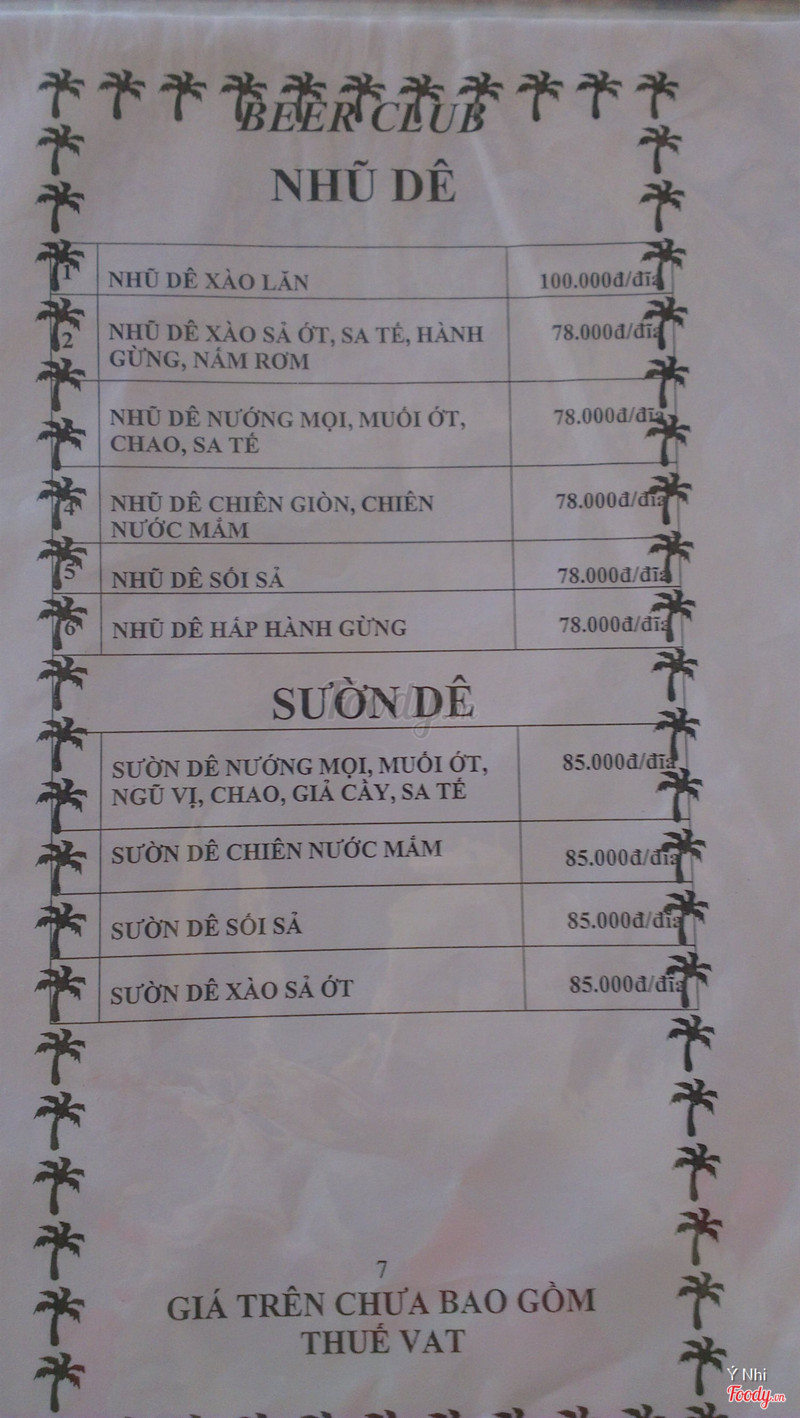 BEER CLUB
NHŨ DÊ
1 NHŨ DÊ XÀO LĂN 100.000đ/đĩa
2 NHŨ DÊ XÀO SẢ ỚT, SA TẾ, HÀNH 78.000đ/đĩa
GỪNG, NẤM RƠM
NHŨ DÊ NƯỚNG MỌI, MUỐI ỚT, 78.000đ/đĩa
CHAO, SA TẾ
4 NHŨ DÊ CHIÊN GIÒN, CHIÊN 78.000đ/đĩa
NƯỚC MẮM
5 NHŨ DÊ SỐI SẢ 78.000đ/đĩa
6 NHŨ DÊ HẤP HÀNH GỪNG 78.000đ/đĩa
SƯỜN DÊ
SƯỜN DÊ NƯỚNG MỌI, MUỐI ỚT, 85.000đ/đĩa
NGŨ VỊ, CHAO, GIẢ CẦY, SA TẾ
SƯỜN DÊ CHIÊN NƯỚC MẮM 85.000đ/đĩa
SƯỜN DÊ SỐI SẢ 85.000đ/đĩa
SƯỜN DÊ XÀO SẢ ỚT 85.000đ/đĩa
7
GIÁ TRÊN CHƯA BAO GỒM
THUẾ VAT
Ý Nhi
Foody.vn